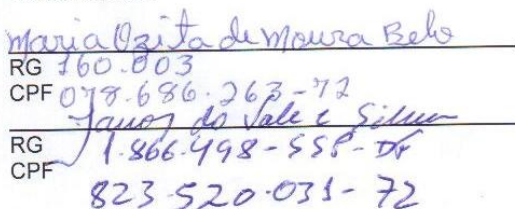 Maria Ozita de Moura Belo
RG 160.003
CPF 078.686.263-72
do Vale e Silva
RG 1.866.498-SSP-DF
CPF
823.520.031-72